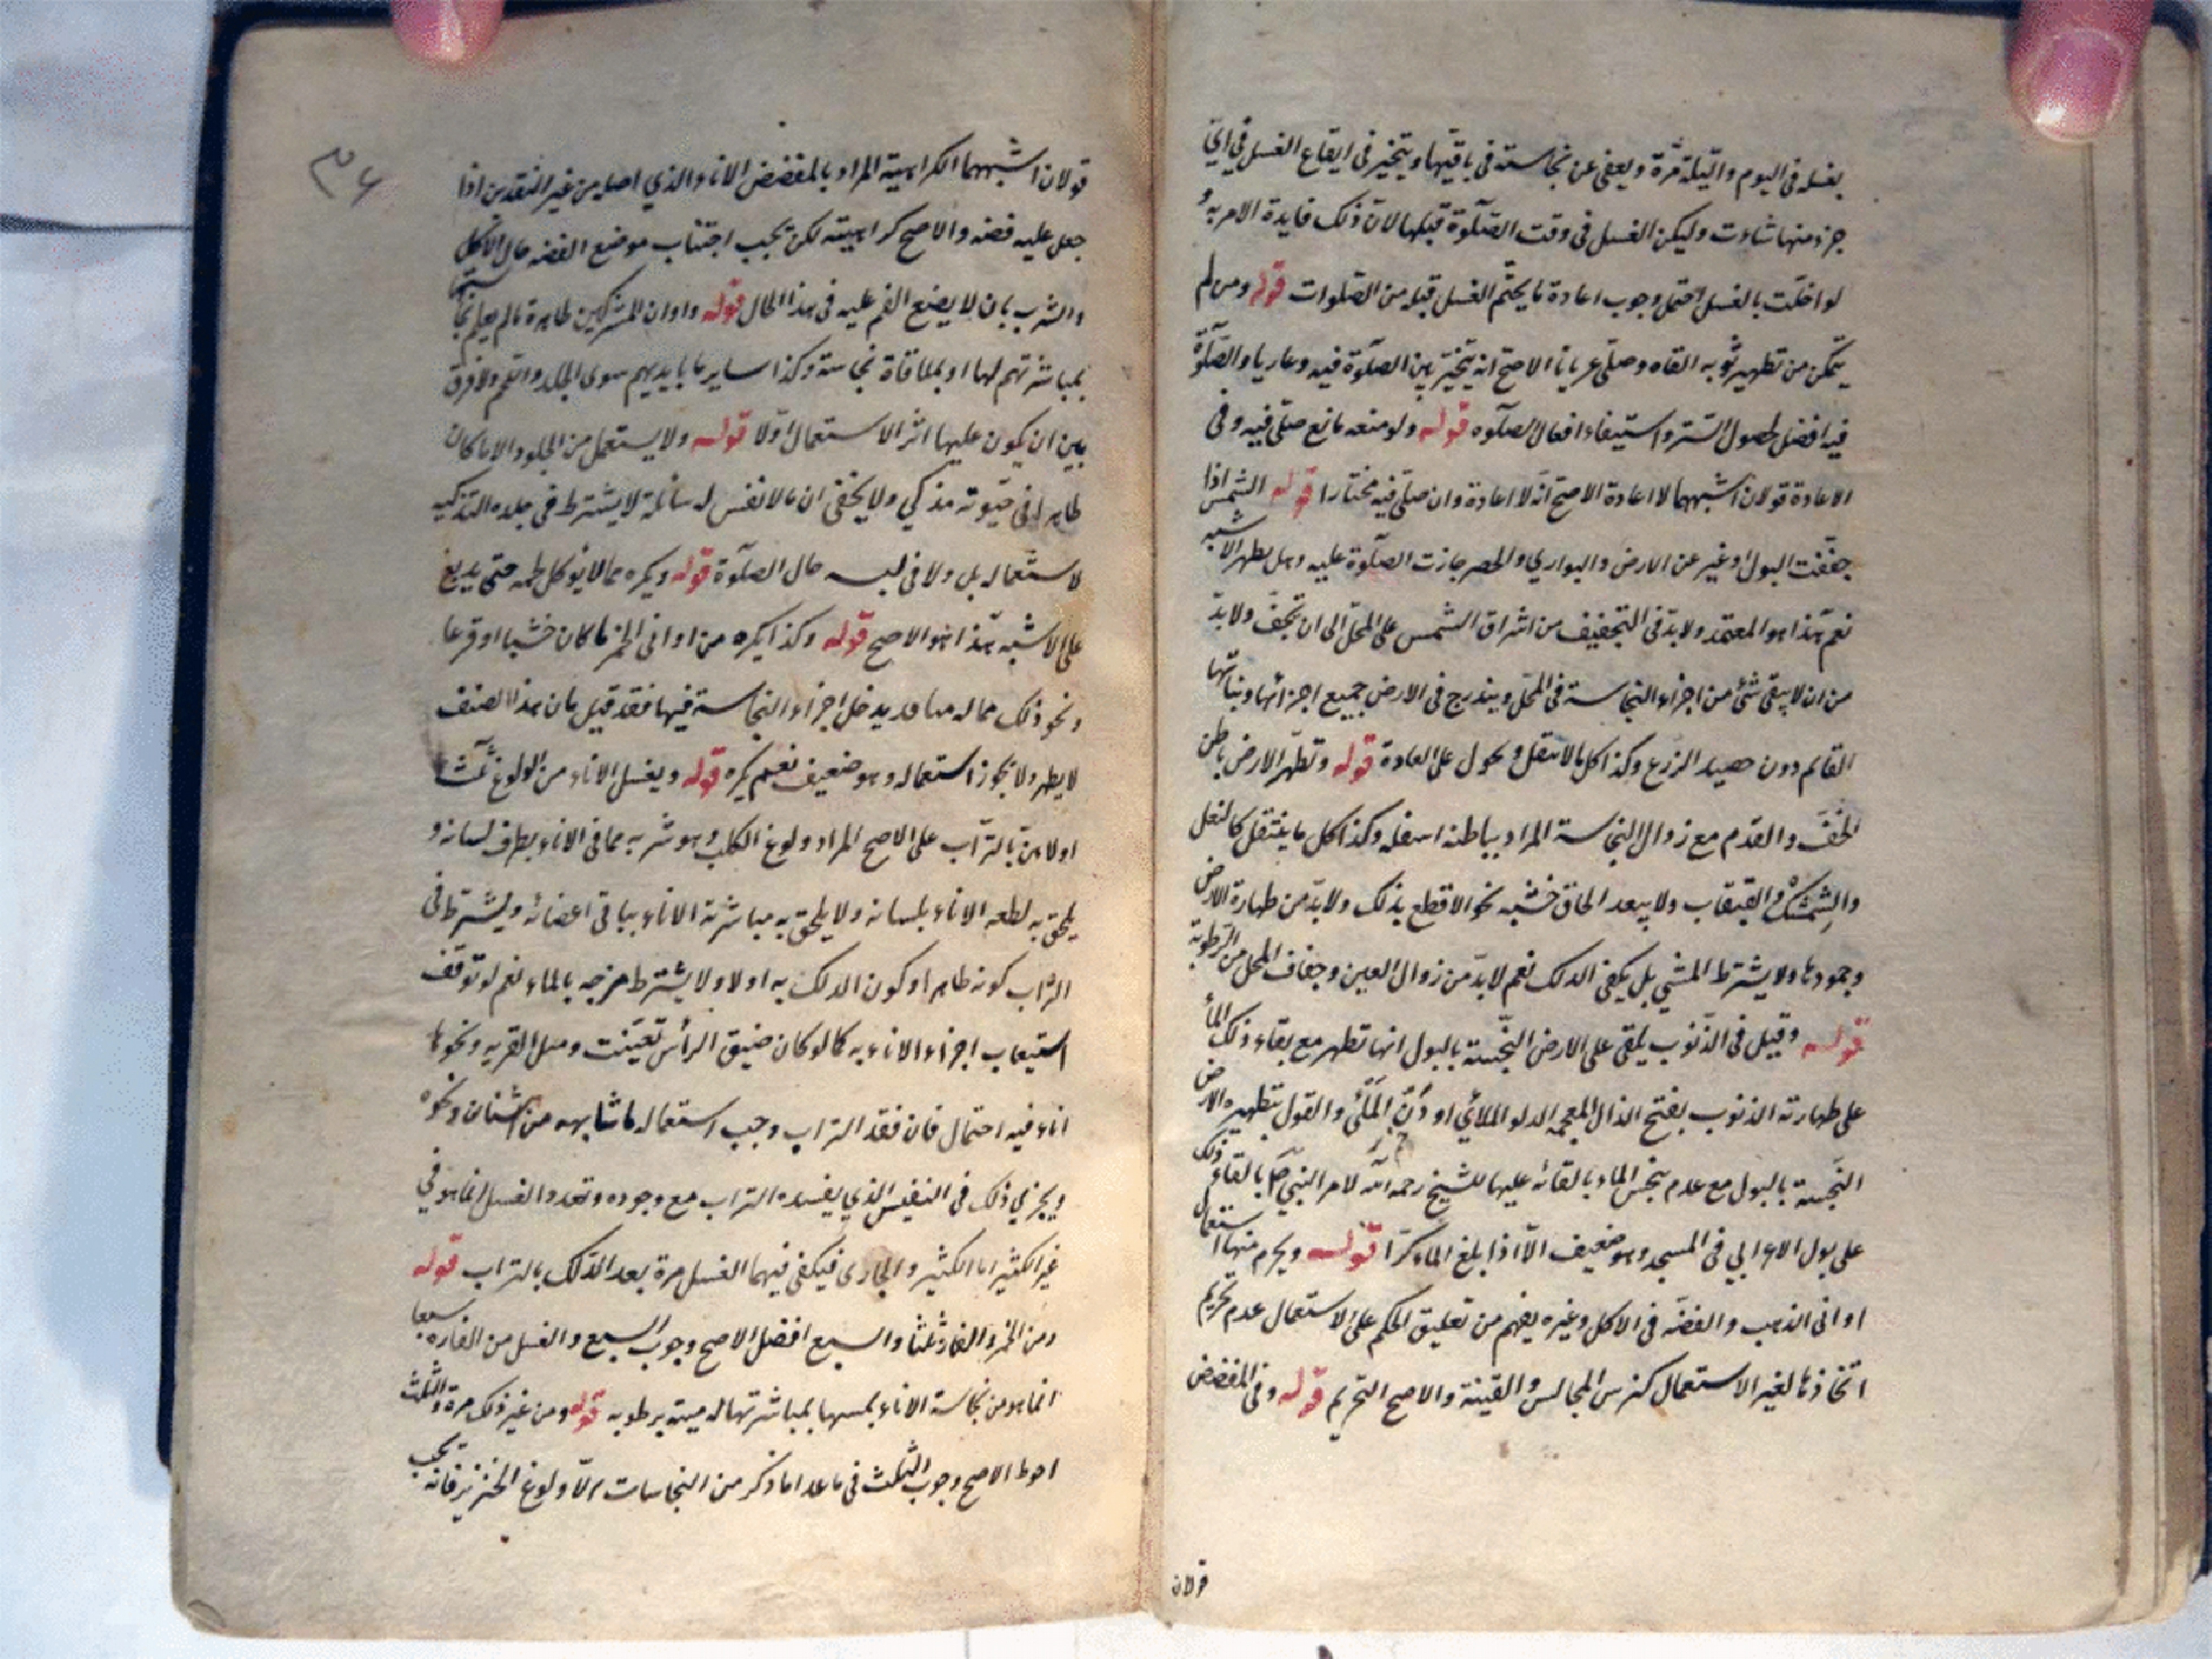 يغسله في اليوم والليلة مرة ويعفى عن نجاسته في باقيها ويتخير في ايقاع الغسل في اي
جزء منها شاءت وليكن الغسل في وقت الصلوة قبلها لان ذلك فايدة الامر به و
لو اخلت بالغسل احتمل وجوب اعادة ما يحتم الغسل قبله من الصلوات قوله ومن لم
يتمكن من تطهير ثوبه القاه وصلى عريانا الاصح انه يتخير بين الصلوة فيه وعاريا والصلوة
فيه افضل لحصول الستر واستيفاء افعال الصلوه قوله ولو منعه مانع صلى فيه وفي
الاعادة قولان اشبههما لا اعادة الاصح انه لا اعادة وان صلى فيه مختارا قوله الشمس اذا
جففت البول او غيره عن الارض والبواري والحصر جازت الصلوة عليه وهل يطهر الاشبه
نعم هذا هو المعتمد ولابد في التجفيف من اشراق الشمس على المحل الى ان تجف ولابد
من ان لا يبقى شئ من اجزاء النجاسة في المحل ويندرج في الارض جميع اجزائها ونباتها
القائم دون حصيد الزرع وكذا كل ما لا ينقل ويحول على العادة قوله وتطهر الارض باطن
الخف والقدم مع زوال النجاسة المراد بباطنه اسفله وكذا كل ما ينتقل كالنعل
والشمشك والقبقاب ولا يبعد الحاق خشبه نحو الاقطع بذلك ولابد من طهارة الارض
وجمودها ولا يشترط المشي بل يكفي الدلك نعم لابد من زوال العين وجفاف المحل من الرطوبة
قوله وقيل في الذنوب يلقى على الارض النجسة بالبول انها تطهر مع بقاء ذلك الماء
على طهارته الذنوب بفتح الذال المعجمه الدلو الملائي او دن الملئ والقول بتطهيره الارض
النجسة بالبول مع عدم ينجس الماء بالقائه عليها للشيخ رحمه الله لامر النبي ص بالقاء ذلك
على بول الاعرابي في المسجد وهو ضعيف الا اذا بلغ الماء كرا قوله ويحرم منها استعمال
اواني الذهب والفضه في الاكل وغيره يفهم من تعليق الحكم على الاستعمال عدم تحريم
اتخاذها لغير الاستعمال كتزيين المجالس والقينة والاصح التحريم قوله وفي المفضض
قولان
٣٤
قولان اشبههما الكراهية المراد بالمفضض الاناء الذي اصله من غير النقدين اذا
جعل عليه فضه والاصح كراهيته لكن يجب اجتناب موضع الفضه حال الاكل
والشرب بان لا يضع الفم عليه في هذا الحال قوله واوان المشركين طاهرة ما لم يعلم نجاستها
بمباشرتهم لها او بملاقاة نجاسة وكذا ساير ما بايديهم سوى الجلد واللحم ولا فرق
بين ان يكون عليها اثر الاستعمال او لا قوله ولا يستعمل من الجلود الا ما كان
طاهرا في حيوته مذكي ولا يخفى ان ما لا نفس له سائلة لا يشترط في جلده التذكيه
لاستعماله بل ولا في لبسه حال الصلوة قوله ويكره مما لا يؤكل لحمه حتى يدبغ
على الاشبه هذا هو الاصح قوله وكذا يكره من اواني الخمر ما كان خشبا او قرعا
ونحو ذلك مما له مسام قد يدخل اجزاء النجاسة فيها فقد قيل بان هذا الصنف
لا يطهر ولا يجوز استعماله وهو ضعيف نعم يكره قوله ويغسل الاناء من الولوغ ثلثا
اولاهن بالتراب على الاصح المراد ولوغ الكلب وهو شربه مما في الاناء بطرف لسانه و
يلحق به لطعه الاناء بلسانه ولا يلحق به مباشرته الاناء بباقي اعضائه ويشترط في
التراب كونه طاهرا وكون الدلك به اولا ولا يشترط مزجه بالماء نعم لو توقف
استيعاب اجزاء الاناء به كما لو كان ضيق الرأس تعينت ومثل القربه ونحوها
اناء فيه احتمال فان فقد التراب وجب استعمال ما شابهه من اشنان ونحوه
ويجزي ذلك في النفيس الذي يفسده التراب مع وجوده وتعدد الغسل انما هو في
غير الكثير اما الكثير والجاري فيكفي فيهما الغسل مرة بعد الدلك بالتراب قوله
ومن الخمر والفار ثلثا والسبع افضل الاصح وجوب السبع والغسل من الفاره سبعا
انما هو من نجاسة الاناء بمسها بمباشرتها له ميتة برطوبه قوله ومن غير ذلك مرة والثلث
احوط الاصح وجوب الثلث في ما عدا ما ذكر من النجاسات الا ولوغ الخنزير فانه يجب